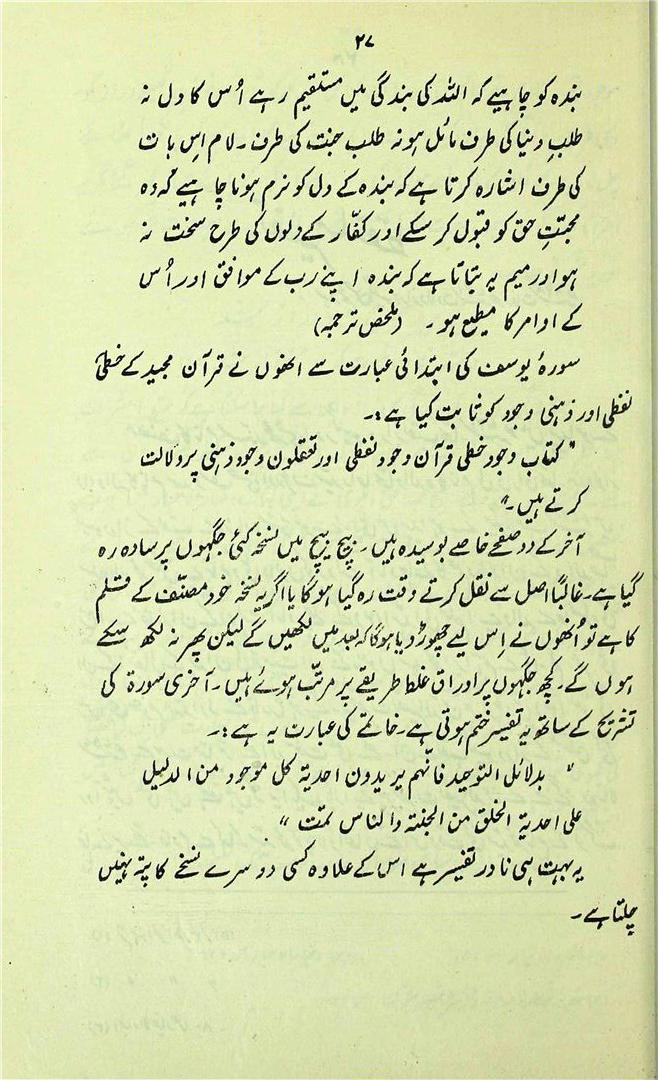 ۲۷
بندہ کو چاہیے کہ اللہ کی بندگی میں مستقیم رہے اُس کا دل نہ
طلبِ دنیا کی طرف مائل ہو نہ طلب جنت کی طرف۔ لام اس بات
کی طرف اشارہ کرتا ہے کہ بندہ کے دل کو نرم ہونا چاہیے کہ وہ
محبّتِ حق کو قبول کر سکے اور کفّار کے دلوں کی طرح سخت نہ
ہو اور میم یہ بتاتا ہے کہ بندہ اپنے رب کے موافق اور اُس
کے اوامر کا مطیع ہو۔ (ملخص ترجمہ)
سورۂ یوسف کی ابتدائی عبارت سے انھوں نے قرآن مجید کے خطی،
لفظی اور ذہنی وجود کو ثابت کیا ہے:۔
"کتاب وجود خطی قرآن وجود لفظی اور تعقلون وجود ذہنی پر دلالت
کرتے ہیں۔"
آخر کے دو صفحے خاصے بوسیدہ ہیں۔ بیچ بیچ میں نسخہ کئی جگہوں پر سادہ رہ
گیا ہے۔ غالباً اصل سے نقل کرتے وقت رہ گیا ہوگا یا اگر یہ نسخہ خود مصنّف کے قلم
کا ہے تو اُنھوں نے اِس لیے چھوڑ دیا ہوگا کہ بعد میں لکھیں گے لیکن پھر نہ لکھ سکے
ہوں گے۔ کچھ جگہوں پر اوراق غلط طریقے پر مرتّب ہوئے ہیں۔ آخری سورۃ کی
تشریح کے ساتھ یہ تفسیر ختم ہوتی ہے۔ خاتمے کی عبارت یہ ہے:۔
" بدلائل التوحید فانّہم یریدون احدیة کل موجود من الدلیل
علی احدیة الخلق من الجنتہ والناس تمت "
یہ بہت ہی نادر تفسیر ہے اس کے علاوہ کسی دوسرے نسخے کا پتہ نہیں
چلتا ہے۔